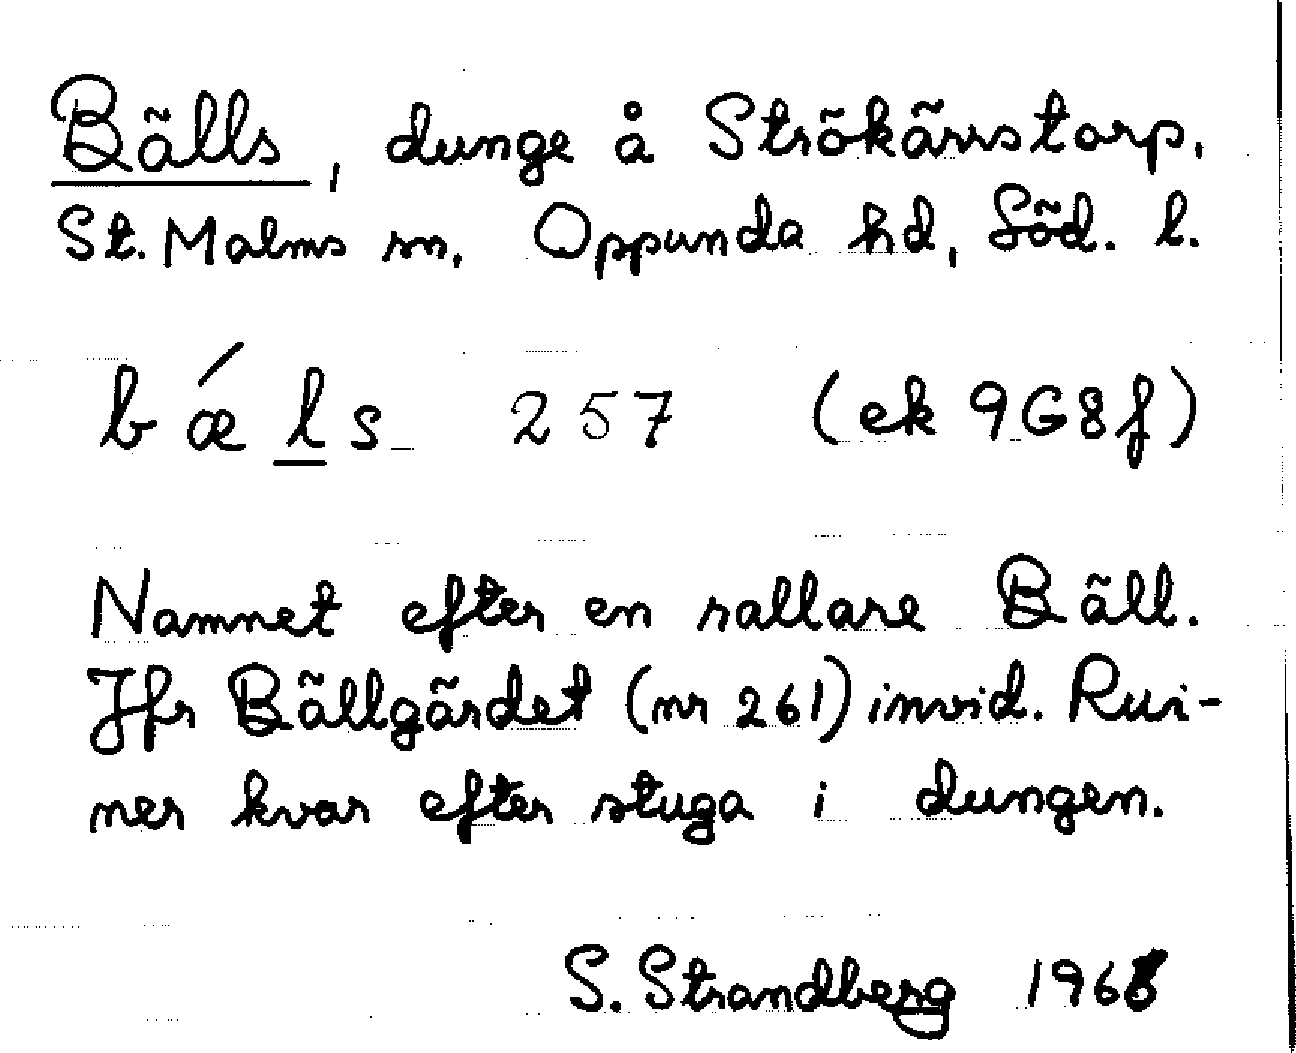 Bälls, dunge å Strökärrstorp,
St. Malms sn, Oppunda hd, Söd. l.
bǽls 257 (ek 9G8f)
Namnet efter en rallare Bäll.
Jfr Bällgärdet (nr 261) invid. Rui-
ner kvar efter stuga i dungen.
S. Strandberg